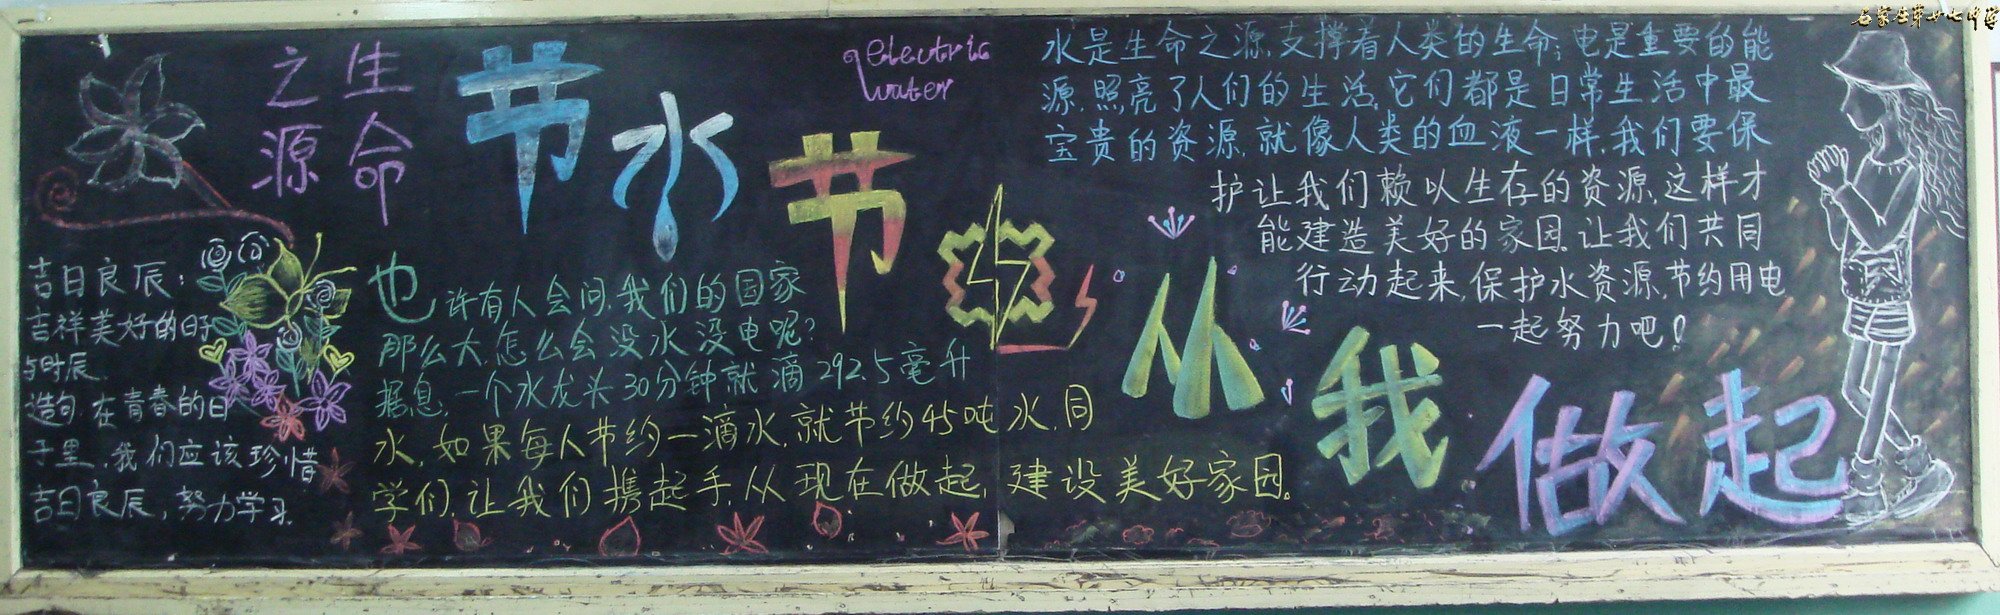 石家庄第廿七中学
生命
之源
节水节电
从我做起
electric
water
水是生命之源,支撑着人类的生命;电是重要的能
源,照亮了人们的生活,它们都是日常生活中最
宝贵的资源,就像人类的血液一样,我们要保
护让我们赖以生存的资源,这样才
能建造美好的家园,让我们共同
行动起来,保护水资源,节约用电
一起努力吧!
也许有人会问,我们的国家
那么大,怎么会没水没电呢?
据息,一个水龙头30分钟就滴292.5毫升
水,如果每人节约一滴水,就节约45吨水,同
学们,让我们携起手,从现在做起,建设美好家园。
吉日良辰:
吉祥美好的日子
与时辰.
造句:在青春的日
子里,我们应该珍惜
吉日良辰,努力学习.